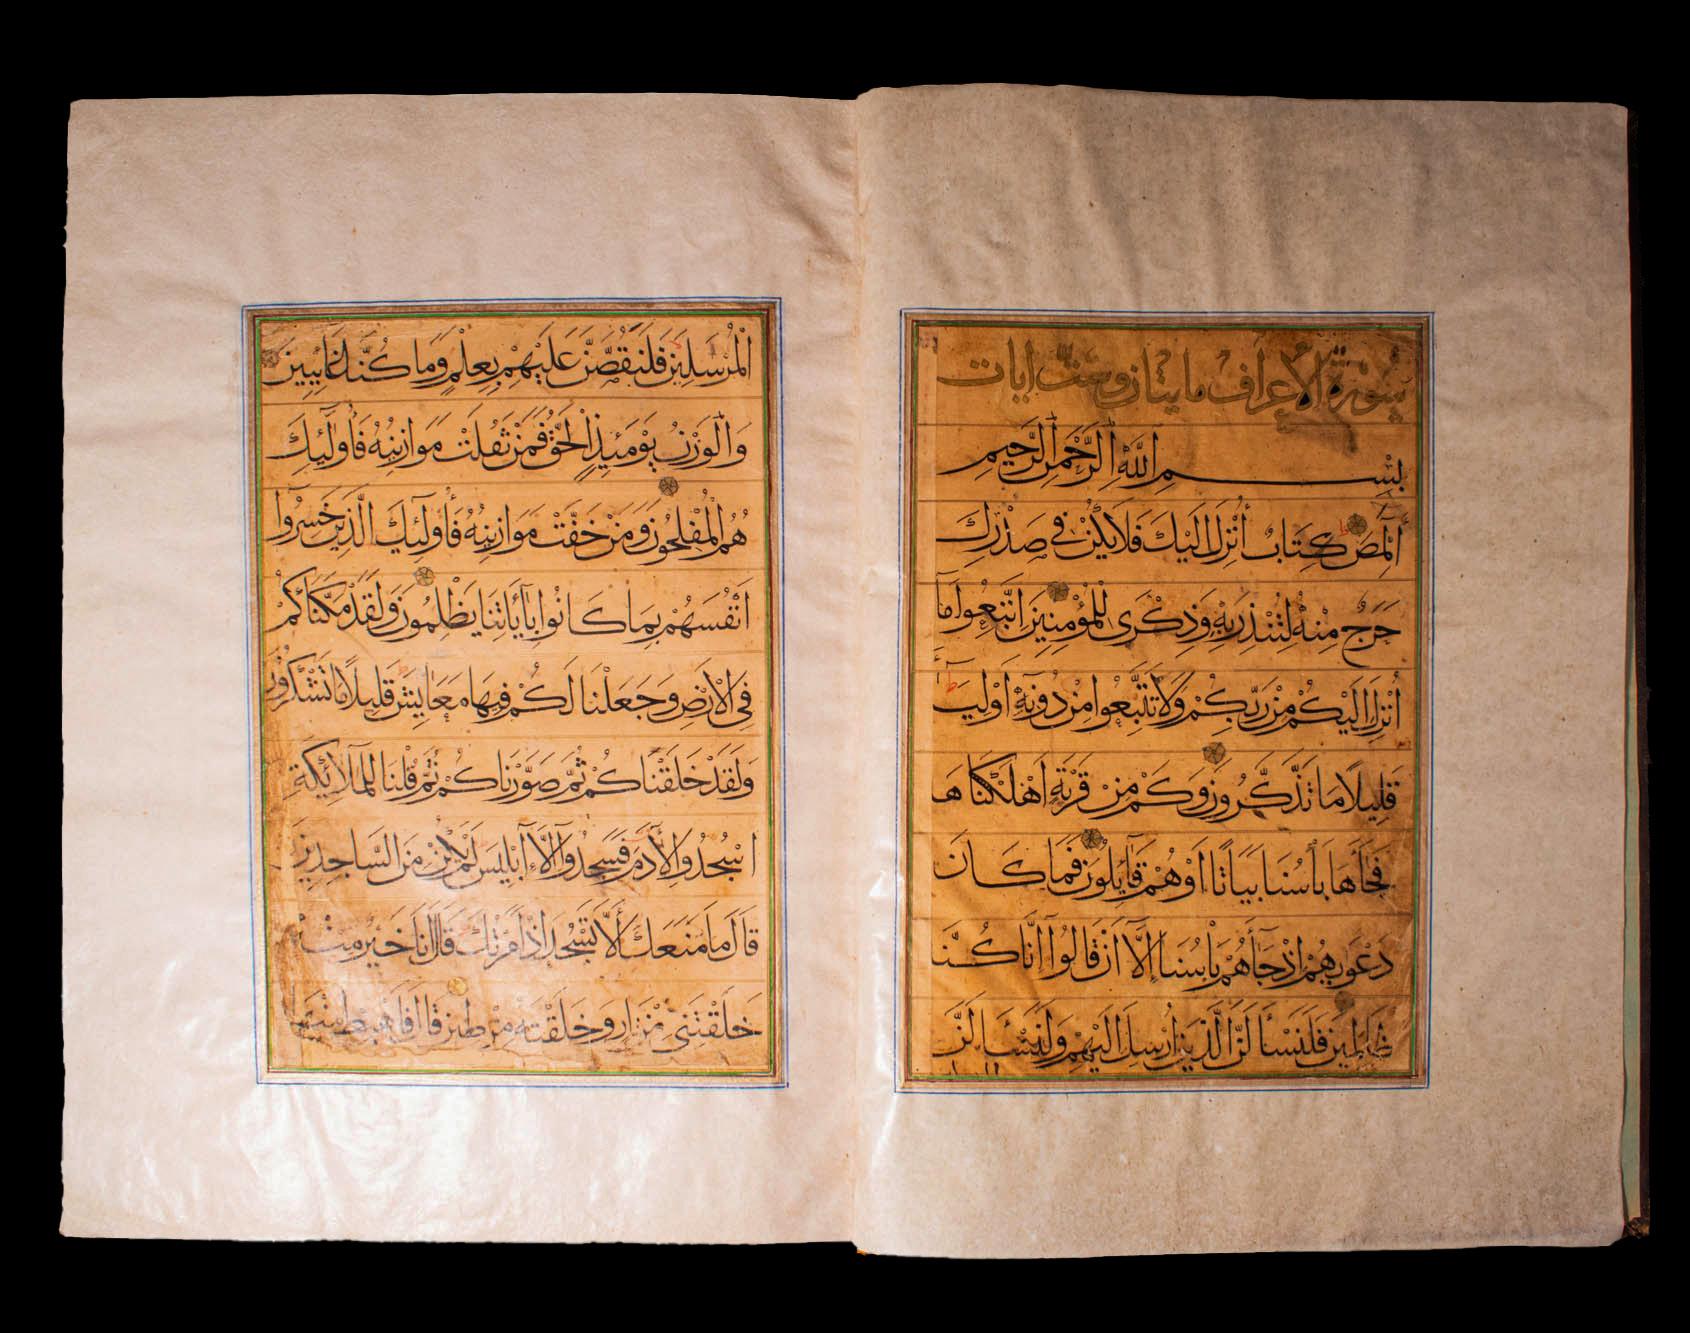 سورة الاعراف مايتان وست ايات
بِسْمِ اللّٰهِ الرَّحْمٰنِ الرَّحِيمِ
الٓمٓصٓ كِتَابٌ أُنْزِلَ اِلَيْكَ فَلَا يَكُنْ فِى صَدْرِكَ
حَرَجٌ مِنْهُ لِتُنْذِرَ بِهٖ وَذِكْرٰى لِلْمُؤْمِنِينَ اِتَّبِعُوا مَآ
أُنْزِلَ اِلَيْكُمْ مِنْ رَبِّكُمْ وَلَا تَتَّبِعُوا مِنْ دُونِهٖٓ اَوْلِيَآءَ
قَلِيلًا مَا تَذَكَّرُونَ وَكَمْ مِنْ قَرْيَةٍ اَهْلَكْنَاهَا
فَجَآءَهَا بَأْسُنَا بَيَاتًا اَوْ هُمْ قَآئِلُونَ فَمَا كَانَ
دَعْوٰيهُمْ اِذْ جَآءَهُمْ بَأْسُنَا اِلَّآ اَنْ قَالُوٓا اِنَّا كُنَّا
ظَالِمِينَ فَلَنَسْأَلَنَّ الَّذِينَ اُرْسِلَ اِلَيْهِمْ وَلَنَسْأَلَنَّ
الْمُرْسَلِينَ فَلَنَقُصَّنَّ عَلَيْهِمْ بِعِلْمٍ وَمَا كُنَّا غَائِبِينَ
وَالْوَزْنُ يَوْمَئِذٍ الْحَقُّ فَمَنْ ثَقُلَتْ مَوَازِينُهُ فَأُولٰٓئِكَ
هُمُ الْمُفْلِحُونَ وَمَنْ خَفَّتْ مَوَازِينُهُ فَأُولٰٓئِكَ الَّذِينَ خَسِرُوٓا
اَنْفُسَهُمْ بِمَا كَانُوا بِاٰيَاتِنَا يَظْلِمُونَ وَلَقَدْ مَكَّنَّاكُمْ
فِى الْاَرْضِ وَجَعَلْنَا لَكُمْ فِيهَا مَعَايِشَ قَلِيلًا مَا تَشْكُرُونَ
وَلَقَدْ خَلَقْنَاكُمْ ثُمَّ صَوَّرْنَاكُمْ ثُمَّ قُلْنَا لِلْمَلَآئِكَةِ
اسْجُدُوا لِاٰدَمَ فَسَجَدُوٓا اِلَّآ اِبْلِيسَ لَمْ يَكُنْ مِنَ السَّاجِدِينَ
قَالَ مَا مَنَعَكَ أَلَّا تَسْجُدَ اِذْ اَمَرْتُكَ قَالَ اَنَا خَيْرٌ مِنْهُ
خَلَقْتَنِى مِنْ نَارٍ وَخَلَقْتَهُ مِنْ طِينٍ قَالَ فَاهْبِطْ مِنْهَا